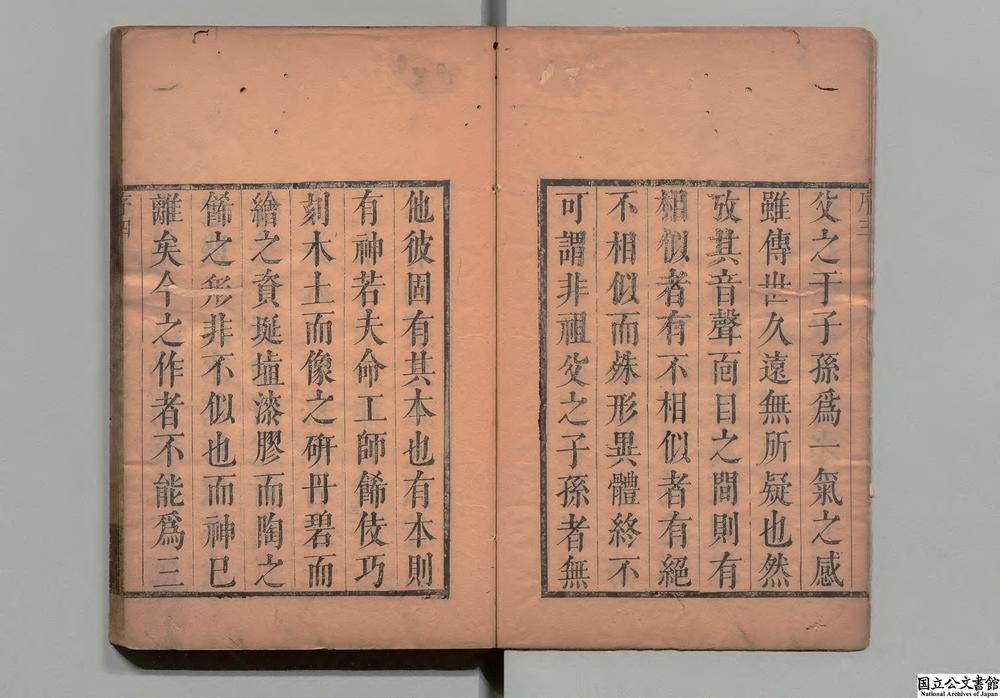 父之于子孫爲一氣之感
雖傳世久遠無所疑也然
攷其音聲面目之間則有
相似者有不相似者有絕
不相似而殊形異體終不
可謂非祖父之子孫者無
他彼固有其本也有本則
有神若夫命工師餙伎巧
刻木土而像之研丹碧而
繪之資埏埴漆膠而陶之
餙之形非不似也而神已
離矣今之作者不能爲三
序四
国立公文書館
National Archives of Japan